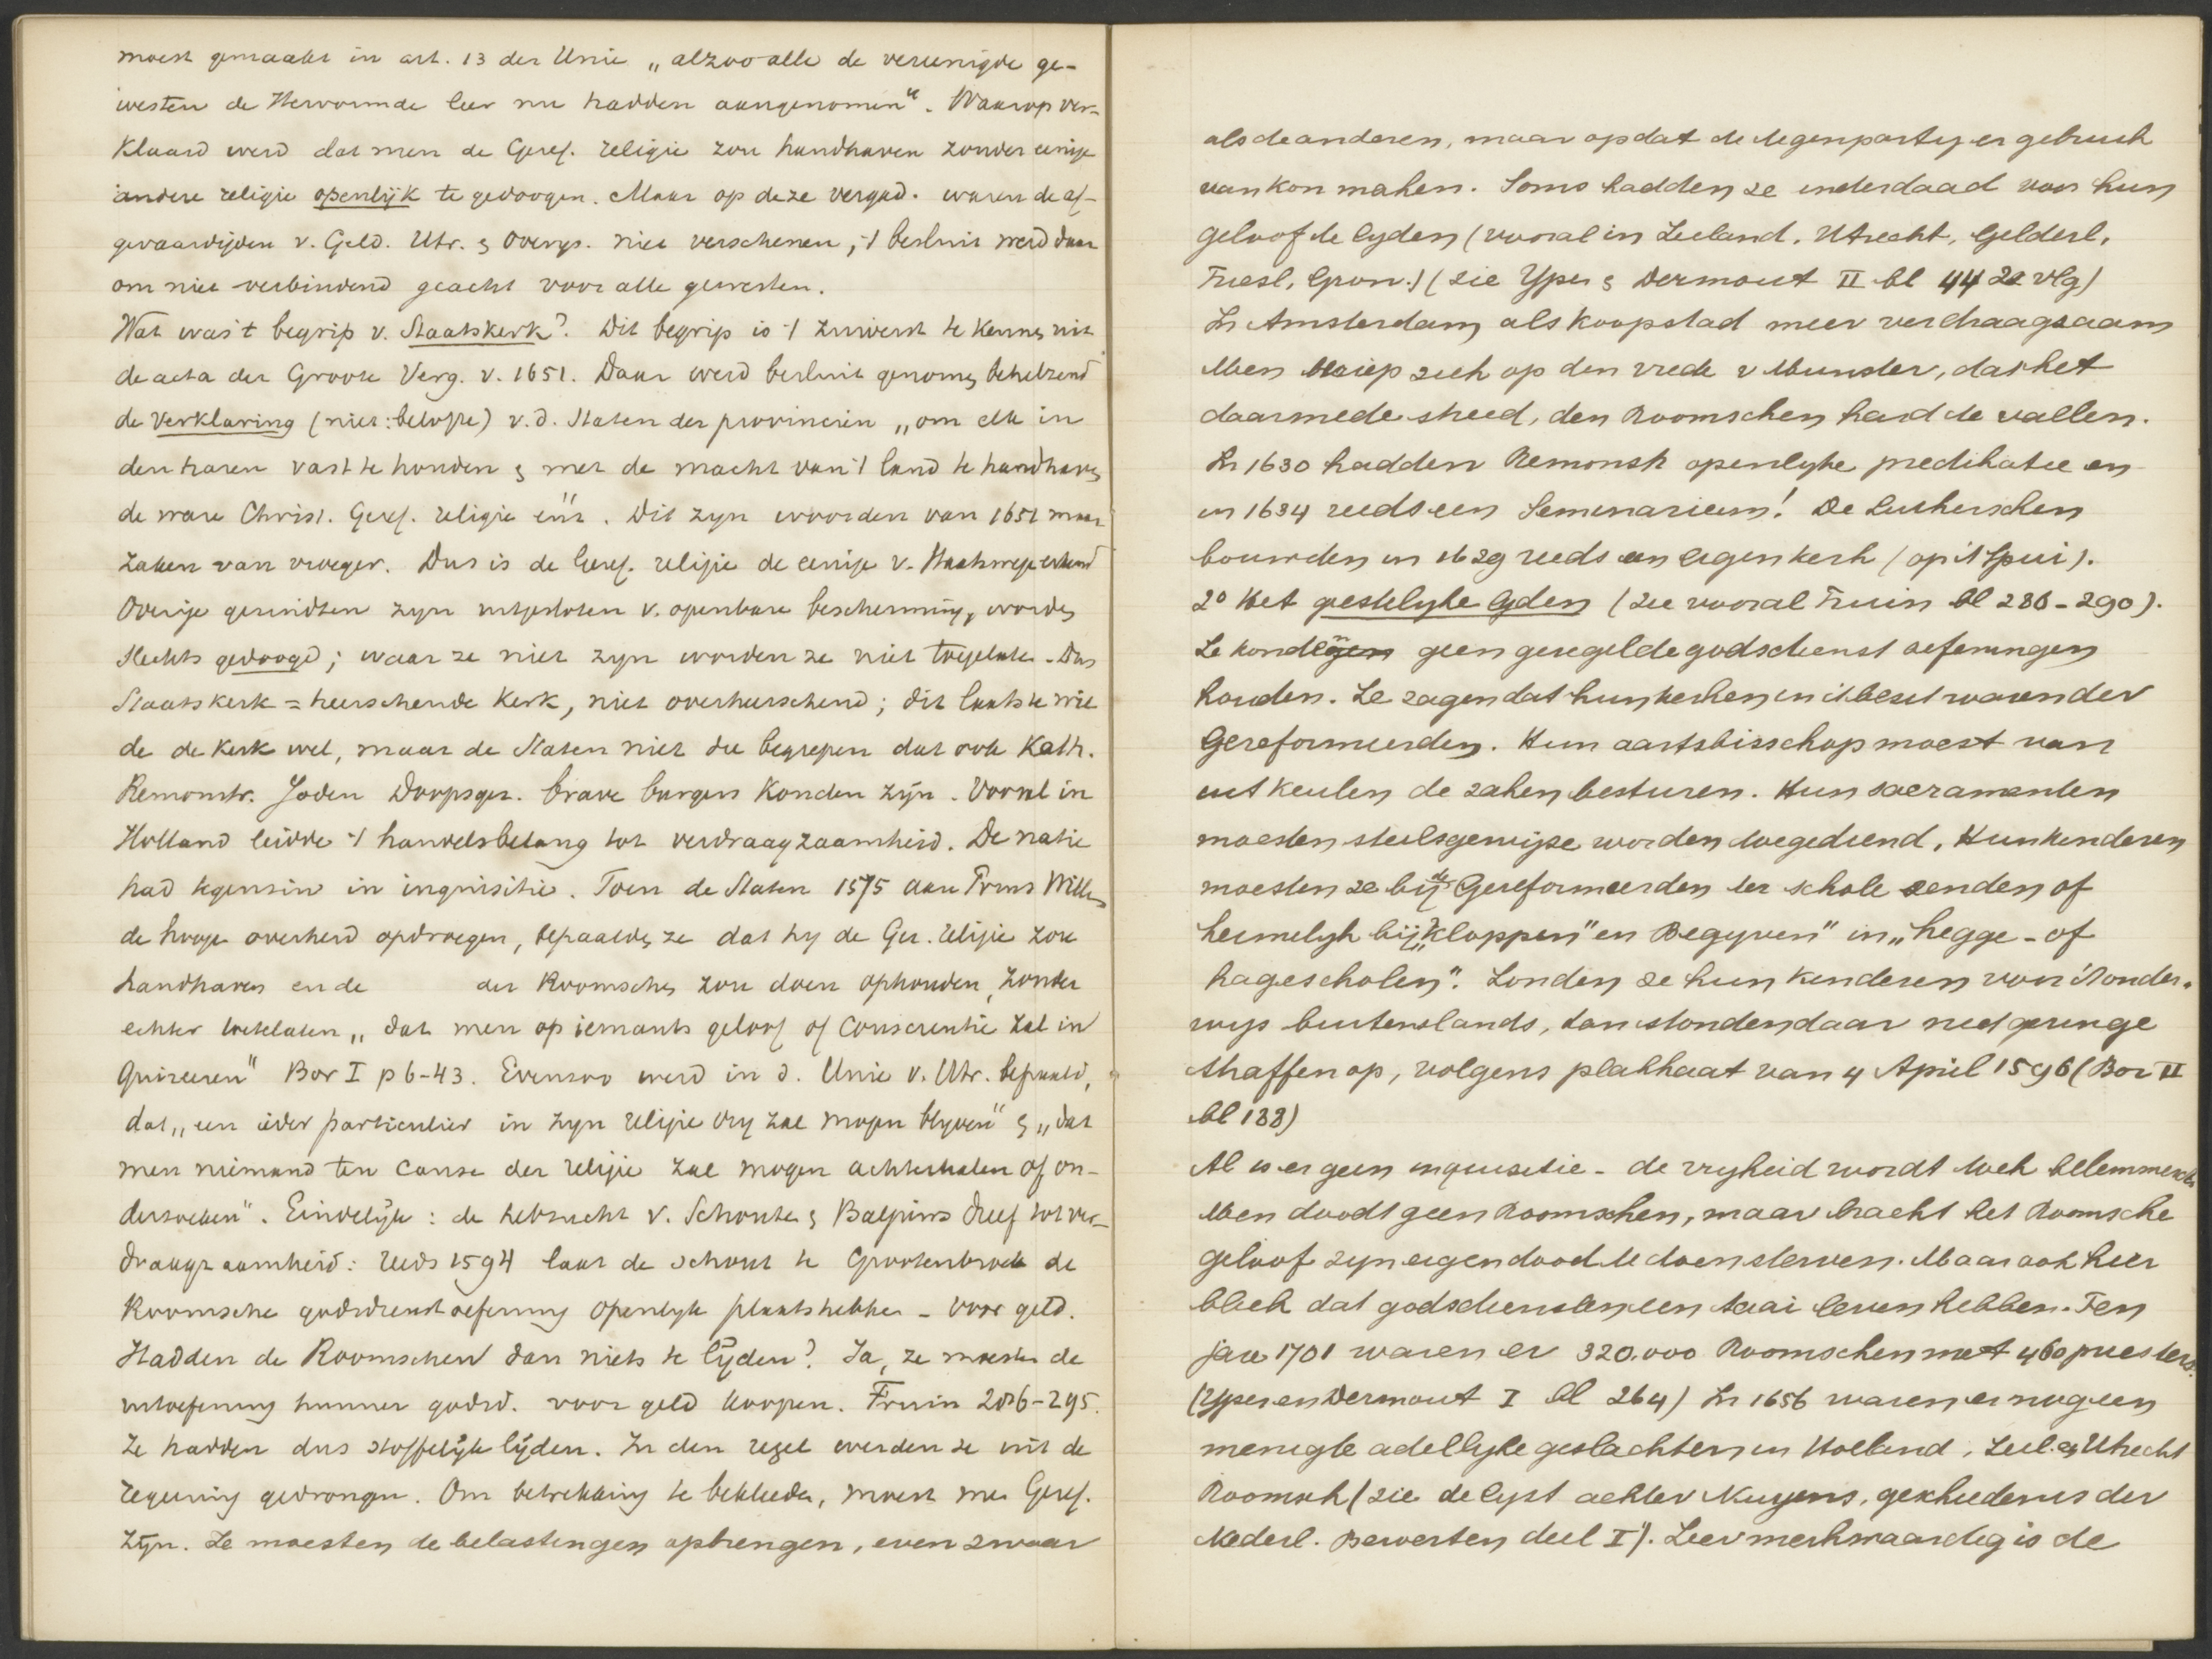 moest gemaakt in art. 13 der Unie „alzoo alle de vereenigde ge-
westen de Hervormde leer nu hadden aangenomen“. Waarop ver-
klaard werd dat men de Geref. religie zou handhaven zonder eenige
andere religie openlijk te gedoogen. Maar op deze vergad. waren de af-
gevaardijden v. Geld. Utr. & Overys. niet verschenen; 't besluit werd daar
om niet verbindend geacht voor alle gewesten.
Wat was 't begrip v. Staatskerk? Dit begrip is 't zuiverst te kennen uit
de acta der Groote Verg. v. 1651. Daar werd besluit genomen behelzend
de verklaring (niet: belofte) v. d. Staten der provincien „om elk in
den haren vast te houden & met de macht van 't land te handhaven
de ware Christ. Geref. religie enz“. Dit zyn woorden van 1651 maar
zaken van vroeger. Dus is de Geref. religie de eenige v. Staatswege erkend
Overige gezindten zyn uitgesloten v. openbare bescherming, worden
slechts gedoogd; waar ze niet zyn worden ze niet toegelaten. Dus
Staatskerk = heerschende kerk, niet overheerschend; dit laatste wil
de de kerk wel, maar de Staten niet die begrepen dat ook Kath.
Remonstr. Joden Doopsgez. brave burgers konden zijn. Vooral in
Holland leidde 't handelsbelang tot verdraagzaamheid. De natie
had tegenzin in inquisitie. Toen de Staten 1575 aan Prins Willem
de hooge overheid opdroegen, bepaalden ze dat hy de Ger. religie zou
handhaven en de der Roomschen zou doen ophouden, zonder
echter toetelaten „dat men op iemants geloof of Conscientie zal in
quireeren“ Bor I p 6-43. Evenzoo werd in d. Unie v. Utr. bepaald,
dat „een ieder particulier in zyn religie vry zal mogen blyven“ & „dat
men niemand ter cause der religie zal mogen achterhalen of on-
dersoeken“. Eindelijk: de hebzucht v. Schouten & Baljuws dreef tot ver-
draagzaamheid: reeds 1594 laat de schout te Grootenbroek de
Roomsche godsdienstoefening openlyk plaatshebben - voor geld.
Hadden de Roomschen dan niets te lijden? Ja, ze moesten de
uitoefening hunner godsd. voor geld koopen. Fruin 286-295.
Ze hadden dus stoffelijk lijden. In den regel werden ze uit de
regeering gedrongen. Om betrekking te bekleeden, moest men Geref.
zijn. Ze moesten de belastingen opbrengen, even zwaar
als de anderen, maar opdat de tegenparty er gebruik
van kon maken. Soms hadden ze inderdaad voor hun
geloof te lyden (vooral in Zeeland, Utrecht, Gelderl,
Friesl, Gron.) (zie Ypeij & Dermout II bl 442 vlg)
In Amsterdam als koopstad meer verdraagzaam
Men riep zich op den vrede v Munster, dat het
daarmede streed, den Roomschen hard te vallen.
In 1630 hadden Remonstr openlyke predikatie en
in 1634 reeds een Seminarium! De Lutherschen
bouwden in 1629 reeds een eigen kerk (op 't Spui).
2° Het geestelyke lyden (zie vooral Fruin bl 286-290).
Ze konden geen geregelde godsdienst oefeningen
houden. Ze zagen dat hun kerken in 't bezit waren der
Gereformeerden. Hun aartsbisschop moest van
uit Keulen de zaken besturen. Hun sacramenten
moesten steelsgewijze worden toegediend, Hun kinderen
moesten ze bij de Gereformeerden ter schole zenden of
heimelyk bij „kloppen“ en Begynen“ in „hegge- of
hagescholen“. Zonden ze hun kinderen voor 't onder-
wys buitenslands, dan stonden daar niet geringe
straffen op, volgens plakkaat van 4 April 1596 (Bor II
bl 188)
Al is er geen inquisitie - de vryheid wordt toch belemmerd.
Men doodt geen Roomschen, maar tracht het Roomsche
geloof zyn eigen dood te doen sterven. Maar ook hier
bleek dat godsdiensten een taai leven hebben. Ten
jare 1701 waren er 320.000 Roomschen met 460 priesters.
(Ypei en Dermout I bl 264) In 1656 waren er nog een
menigte adellyke geslachten in Holland, Zeel. en Utrecht
Roomsch (zie de lyst achter Nuyens, geschiedenis der
Nederl. Beroerten deel I“). Zeer merkwaardig is de